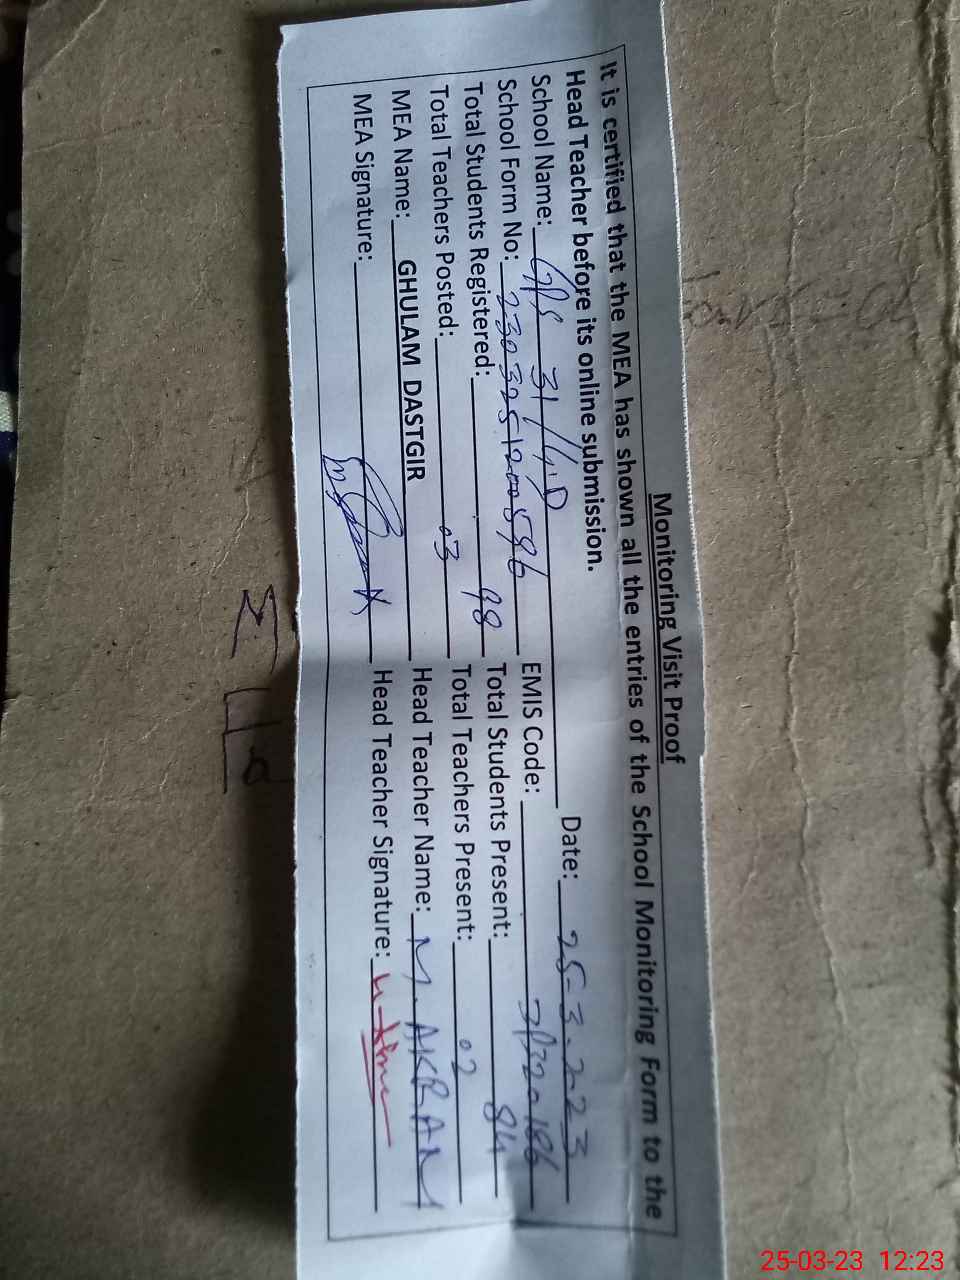 Monitoring Visit Proof
It is certified that the MEA has shown all the entries of the School Monitoring Form to the
Head Teacher before its online submission.
Date: 25-3-2023
School Name: GPS 31/4/D
School Form No: 2303251200596 EMIS Code:
Total Students Registered: 98 Total Students Present: 84
Total Teachers Posted: 03 Total Teachers Present: 02
MEA Name: GHULAM DASTGIR Head Teacher Name: M. AKRAM
MEA Signature: Head Teacher Signature:
25-03-23 12:23